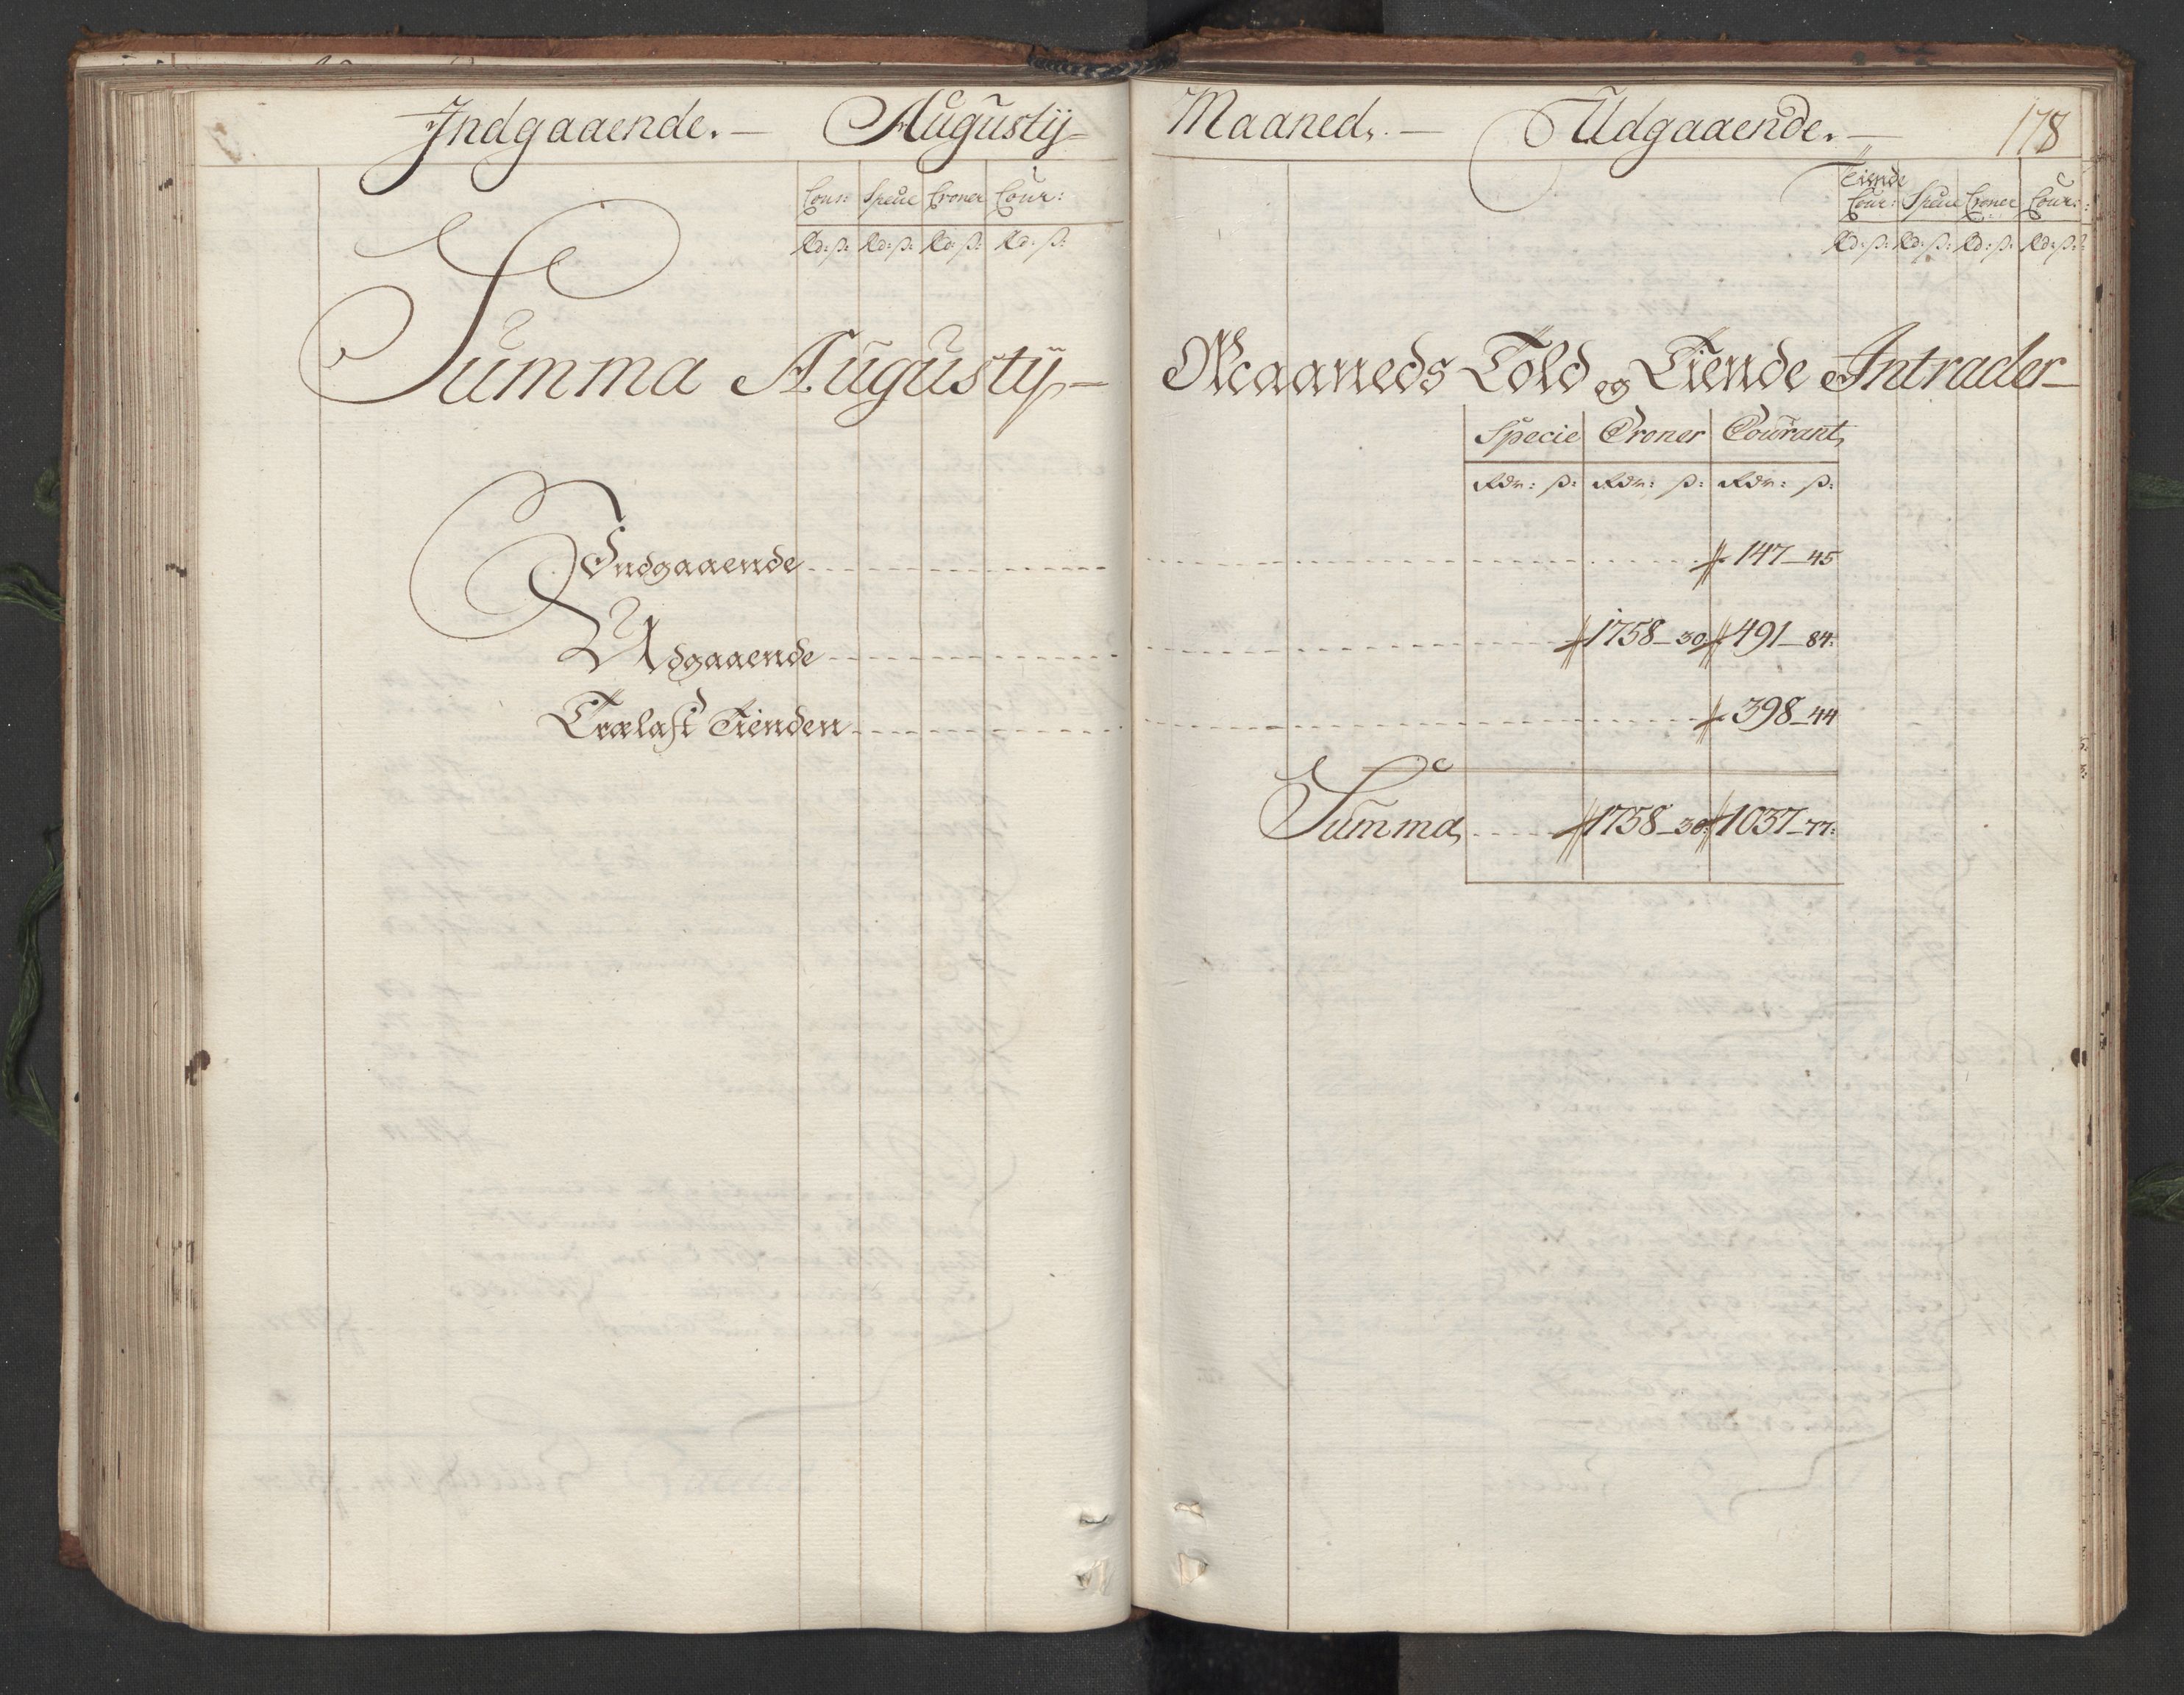 Indgaaende. — Augustij Maaned. — Udgaaende. — 178
Cour: Specie Croner Cour:
Rd: ß: Rd: ß: Rd: ß: Rd: ß:
Tiende
Cour: Specie Croner Cour:
Rd: ß: Rd: ß: Rd: ß: Rd: ß:
Summa Augustij — Maaneds Told og Tiende Intrader —
Specie Croner Courant,
Rdr: ß: Rdr: ß: Rdr: ß:
Indgaaende 147 — 45
Udgaaende 1758 — 30 491 — 84:
Trælast Tienden 398 — 44
Summa, 1758 — 30 1037 — 77: